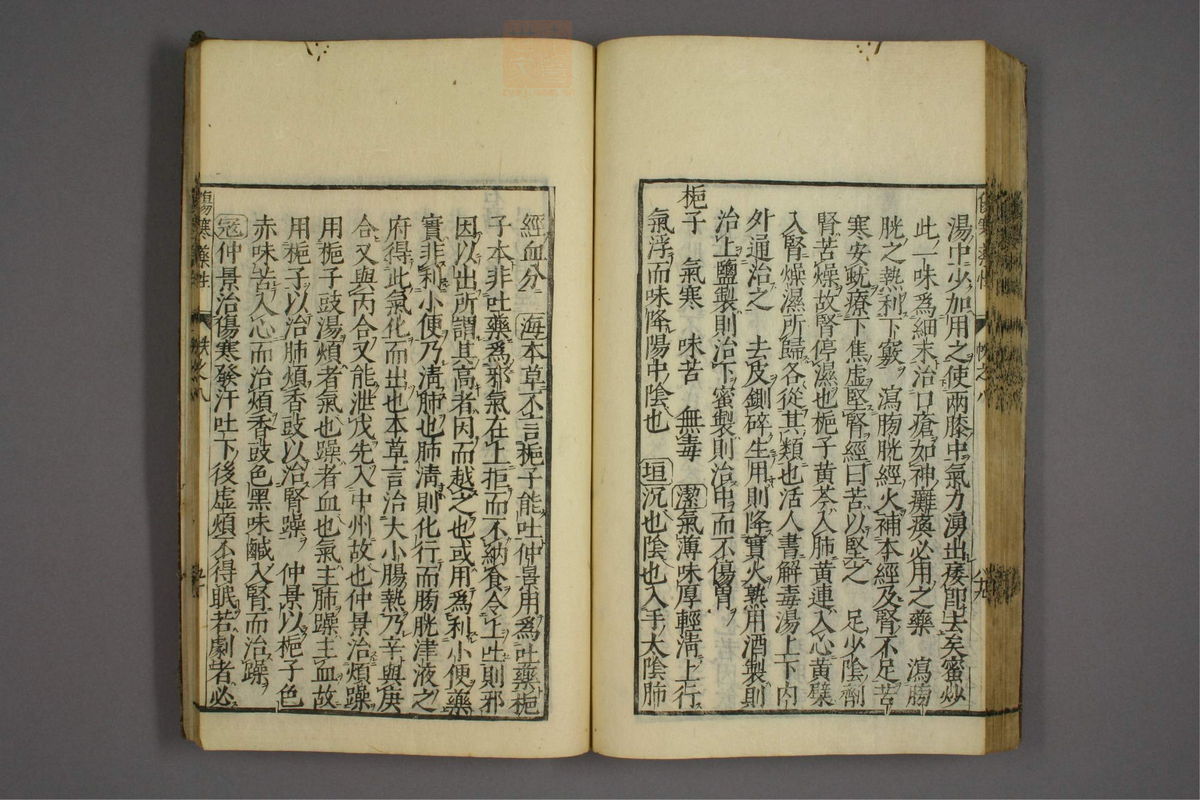 湯中少加用之使兩膝中氣力湧出痿即去矣蜜炒
此一味爲細末治口瘡如神癱瘓必用之藥　瀉膀
胱之熱利下竅　瀉膀胱經火補本經及腎不足苦
寒安蚘療下焦虛堅腎經曰苦以堅之　足少陰劑
腎苦燥故腎停濕也梔子黄芩入肺黄連入心黄蘗
入腎燥濕所歸各從其類也活人書解毒湯上下内
外通治之　去皮剉碎生用則降實火熱用酒製則
治上鹽製則治下蜜製則治中而不傷胃
梔子　氣寒　味苦　無毒　潔氣薄味厚輕淸上行
氣浮而味降陽中陰也　垣沉也陰也入手太陰肺
經血分　海本草不言梔子能吐仲景用爲吐藥梔
子本非吐藥爲邪氣在上拒而不納食令上吐則邪
因以出所謂其高者因而越之也或用爲利小便藥
實非利小便乃淸肺也肺淸則化行而膀胱津液之
府得此氣化而出也本草言治大小腸熱乃辛與庚
合又與丙合又能泄戊先入中州故也仲景治煩躁
用梔子豉湯煩者氣也躁者血也氣主肺躁主血故
用梔子以治肺煩香豉以治腎躁　仲景以梔子色
赤味苦入心而治煩香豉色黑味鹹入腎而治躁
寇仲景治傷寒發汗吐下後虛煩不得眠若劇者必
傷寒藥性